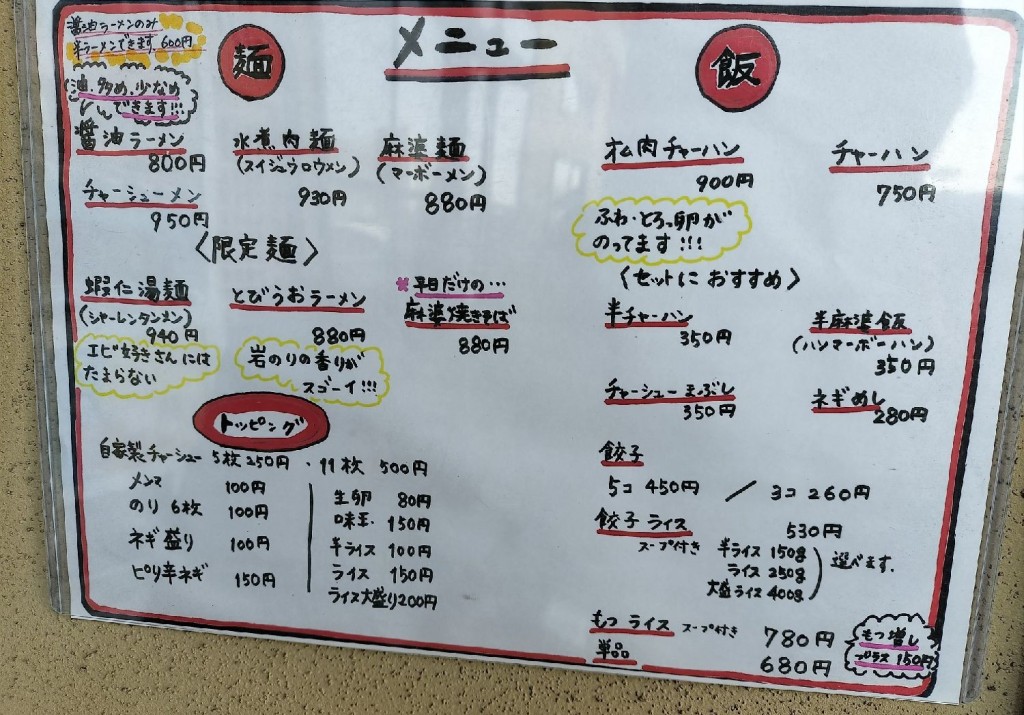 メニュー
醤油ラーメンのみ
半ラーメンできます。600円
油、多め、少なめ
できます!!!
麺
醤油ラーメン
800円
水煮肉麺
(スイジュウロウメン)
930円
麻婆麺
(マーボーメン)
880円
チャーシューメン
950円
〈限定麺〉
蝦仁湯麺
(シャーレンタンメン)
940円
エビ好きさんには
たまらない
とびうおラーメン
880円
岩のりの香りが
スゴーイ!!!
※平日だけの…
麻婆焼きそば
880円
トッピング
自家製チャーシュー 5枚250円・11枚 500円
メンマ 100円
のり 6枚 100円
ネギ盛り 100円
ピリ辛ネギ 150円
生卵 80円
味玉 150円
半ライス 100円
ライス 150円
ライス大盛り200円
飯
オム肉チャーハン
900円
ふわ・とろっ卵が
のってます!!!
チャーハン
750円
〈セットにおすすめ〉
半チャーハン
350円
半麻婆飯
(ハンマーボーハン)
350円
チャーシューまぶし
350円
ネギめし
280円
餃子
5コ 450円 / 3コ 260円
餃子ライス 530円
スープ付き 半ライス 150g
ライス 250g
大盛ライス 400g
選べます.
もつライス スープ付き 780円
単品 680円
もつ増し
プラス 150円